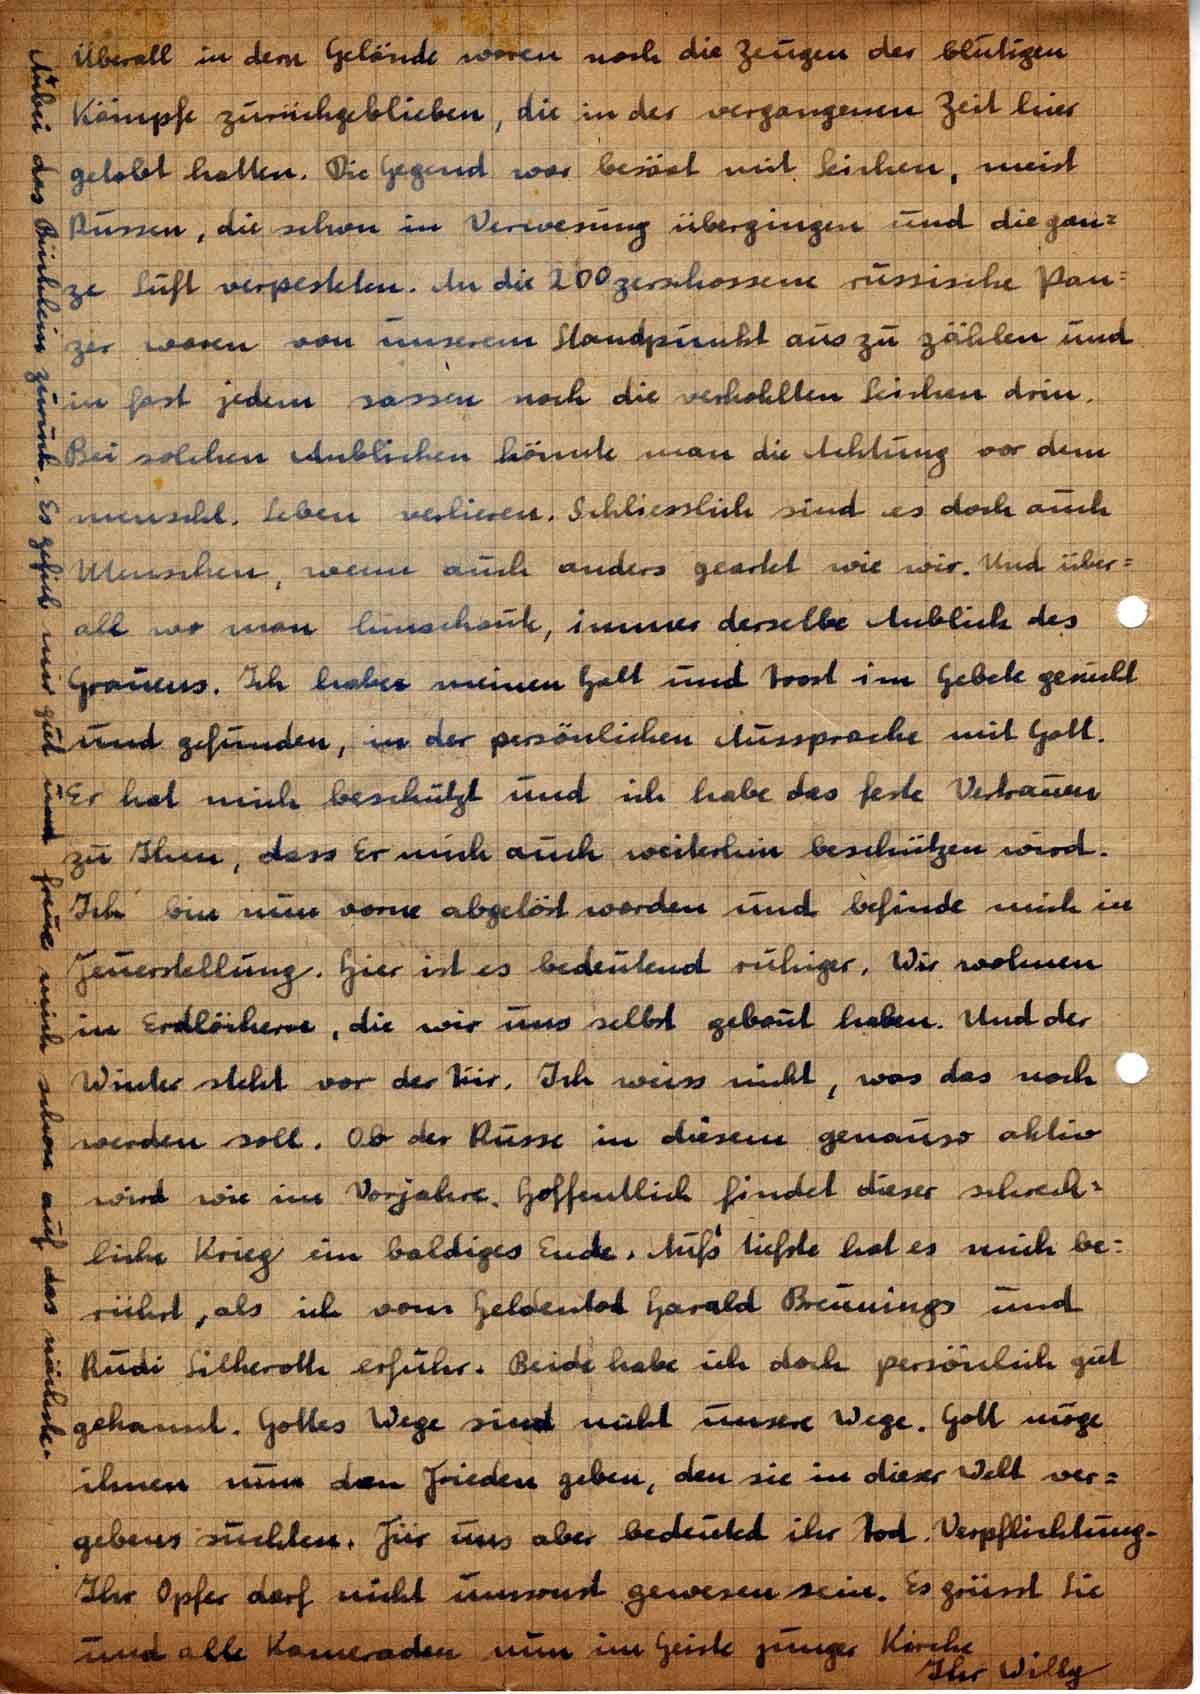 Überall in dem Gelände waren noch die Zeugen der blutigen
Kämpfe zurückgeblieben, die in der vergangenen Zeit hier
getobt hatten. Die Gegend war besäat mit Leichen, meist
Russen, die schon in Verwesung übergingen und die gan=
ze Luft verpesteten. An die 200 zerschossene russische Pan=
zer waren von unserem Standpunkt aus zu zählen und
in fast jedem sassen noch die verkohlten Leichen drin.
Bei solchen Anblicken könnte man die Achtung vor dem
menschl. Leben verlieren. Schliesslich sind es doch auch
Menschen, wenn auch anders geartet wie wir. Und über=
all wo man hinschaute, immer derselbe Anblick des
Grauens. Ich habe meinen Halt und Trost im Gebete gesucht
und gefunden, in der persönlichen Aussprache mit Gott.
Er hat mich beschützt und ich habe das feste Vertrauen
zu Ihm, dass Er mich auch weiterhin beschützen wird.
Ich bin nun vorne abgelöst worden und befinde mich in
Feuerstellung. Hier ist es bedeutend ruhiger. Wir wohnen
in Erdlöchern, die wir uns selbst gebaut haben. Und der
Winter steht vor der Tür. Ich weiss nicht, was das noch
werden soll. Ob der Russe in diesem genauso aktiv
wird wie im Vorjahre. Hoffentlich findet dieser schreck=
liche Krieg ein baldiges Ende. Aufs tiefste hat es mich be=
rührt, als ich vom Heldentod Harald Breunings und
Rudi Silheroth erfuhr. Beide habe ich doch persönlich gut
gekannt. Gottes Wege sind nicht unsere Wege. Gott möge
ihnen nun den Frieden geben, den sie in dieser Welt ver=
gebens suchten. Für uns aber bedeuted ihr Tod Verpflichtung.
Ihr Opfer darf nicht umsonst gewesen sein. Es grüsst Sie
und alle Kameraden nun im Geiste junger Kirche
Ihr Willy
Anbei das Büchlein zurück. Es gefiel mir gut und freue mich schon auf das nächste.